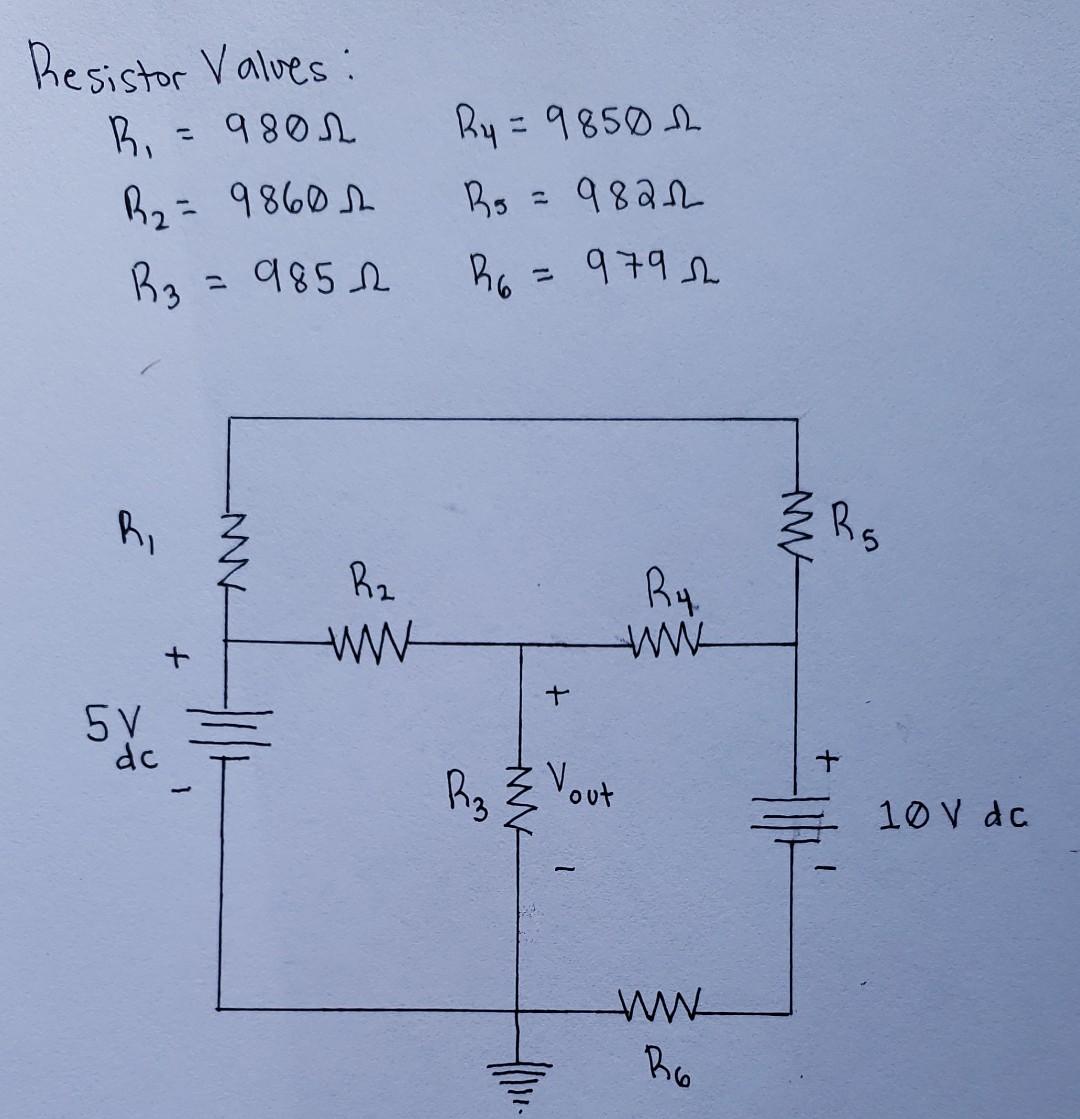 Resistor Values:
R₁ = 980Ω R₄ = 9850Ω
R₂ = 9860Ω R₅ = 982Ω
R₃ = 985Ω R₆ = 979Ω
R₁ R₅
R₂ R₄
+
+
5V
dc
-
R₃ Vout
+
10V dc
-
-
R₆